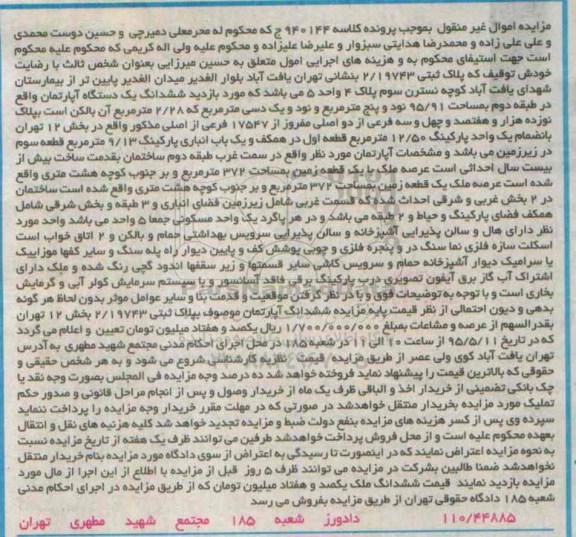 مزایده اموال غیر منقول بموجب پرونده کلاسه ۹۴۰۱۴۴ ج که محکوم له محرمعلی دمیرچی و حسین دوست محمدی
و علی علی زاده و محمدرضا هدایتی سبزوار و علیرضا علیزاده و محکوم علیه ولی اله کریمی که محکوم علیه محکوم
است جهت استیفای محکوم به و هزینه های اجرایی اموال متعلق به حسین میرزایی بعنوان شخص ثالث با رضایت
خودش توقیف که پلاک ثبتی ۲/۱۹۷۴۳ بنشانی تهران یافت آباد بلوار الغدیر میدان الغدیر پایین تر از بیمارستان
شهدای یافت آباد کوچه نسترن سوم پلاک ۴ واحد ۵ می باشد که مورد بازدید ششدانگ یک دستگاه آپارتمان واقع
در طبقه دوم بمساحت ۹۵/۹۱ نود و پنج مترمربع و نود و یک دسی مترمربع که ۲/۲۸ مترمربع آن بالکن است بپلاک
نوزده هزار و هفتصد و چهل و سه فرعی از دو اصلی مفروز از ۱۷۵۴۷ فرعی از اصلی مذکور واقع در بخش ۱۲ تهران
بانضمام یک واحد پارکینگ ۱۲/۵۰ مترمربع قطعه اول در همکف و یک باب انباری پارکینگ ۹/۱۳ مترمربع قطعه سوم
در زیرزمین می باشد و مشخصات آپارتمان مورد نظر واقع در سمت غرب طبقه دوم ساختمان بقدمت ساخت بیش از
بیست سال احداثی است عرصه ملک با یک قطعه زمین بمساحت ۳۷۲ مترمربع و بر جنوب کوچه هشت متری واقع
شده است عرصه ملک یک قطعه زمین بمساحت ۳۷۲ مترمربع و بر جنوب کوچه هشت متری واقع شده است ساختمان
در ۲ بخش غربی و شرقی احداث شده که قسمت غربی شامل زیرزمین فضای انباری و ۳ طبقه و بخش شرقی شامل
همکف فضای پارکینگ و حیاط و ۲ طبقه می باشد و در هر پاگرد یک واحد مسکونی جمعا ۵ واحد می باشد واحد مورد
نظر دارای هال و سالن پذیرایی آشپزخانه و سالن پذیرایی سرویس بهداشتی حمام و بالکن و ۲ اتاق خواب است
اسکلت سازه فلزی نما سنگ در و پنجره فلزی و چوبی پوشش کف و پایین دیوار راه پله سنگ و سایر کفها موزاییک
یا سرامیک دیوار آشپزخانه حمام و سرویس کاشی سایر قسمتها و زیر سقفها اندود گچی رنگ شده و ملک دارای
اشتراک آب گاز برق آیفون تصویری درب پارکینگ برقی فاقد آسانسور و با سیستم سرمایش کولر آبی و گرمایش
بخاری است و با توجه به توضیحات فوق و با در نظر گرفتن موقعیت و قدمت بنا و سایر عوامل موثر بدون لحاظ هر گونه
بدهی و دیون احتمالی از نظر قیمت پایه مزایده ششدانگ آپارتمان موصوف بپلاک ثبتی ۲/۱۹۷۴۳ بخش ۱۲ تهران
بقدر السهم از عرصه و مشاعات بمبلغ ۱/۷۰۰/۰۰۰/۰۰۰ ریال یکصد و هفتاد میلیون تومان تعیین و اعلام می گردد
که در تاریخ ۹۵/۵/۱۱ از ساعت ۱۰ الی ۱۱ در شعبه ۱۸۵ در محل اجرای احکام مدنی مجتمع شهید مطهری به آدرس
تهران یافت آباد کوی ولی عصر از طریق مزایده قیمت نظریه کارشناسی شروع می شود و به هر شخص حقیقی و
حقوقی که بالاترین قیمت را پیشنهاد نماید فروخته خواهد شد ده درصد وجه مزایده فی المجلس بصورت وجه نقد یا
چک بانکی تضمینی از خریدار اخذ و الباقی ظرف یک ماه از خریدار وصول و پس از انجام مراحل قانونی و صدور حکم
تملیک مورد مزایده بخریدار منتقل خواهدشد در صورتی که در مهلت مقرر خریدار وجه مزایده را پرداخت ننماید
سپرده وی پس از کسر هزینه های مزایده بنفع دولت ضبط و مزایده تجدید خواهد شد کلیه هزنیه های نقل و انتقال
بعهده محکوم علیه است و از محل فروش پرداخت خواهدشد طرفین می توانند ظرف یک هفته از تاریخ مزایده نسبت
به نحوه مزایده اعتراض نمایند که در اینصورت تا رسیدگی به اعتراض از سوی دادگاه مورد مزایده بنام خریدار منتقل
نخواهدشد ضمنا طالبین بشرکت در مزایده می توانند ظرف ۵ روز قبل از مزایده با اطلاع از این اجرا از مال مورد
مزایده بازدید نمایند قیمت ششدانگ ملک یکصد و هفتاد میلیون تومان که از طریق مزایده در اجرای احکام مدنی
شعبه ۱۸۵ دادگاه حقوقی تهران از طریق مزایده بفروش می رسد
۱۱۰/۴۴۸۸۵ دادورز شعبه ۱۸۵ مجتمع شهید مطهری تهران